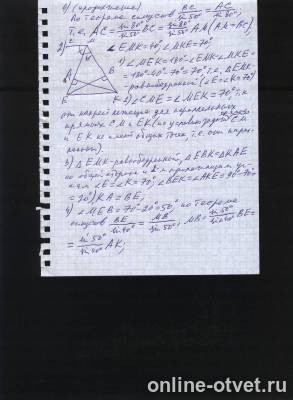 1) (продолжение)
По теореме синусов BC/sin50° = AC/sin80°;
т.е. AC = sin80°/sin50° BC = sin80°/sin50° AM (AM=BC).
2) M ∠EMK=40°, ∠MKE=70°
1) ∠MEK=180°-∠EMK-∠MKE=
=180°-40°-70°=70°; т.е. ΔEMK-
равнобедренный (∠E=∠K=70°)
E K 2) ∠CME=∠MEK=70°, т.к
прямых CM и EK (по условию
и EK не имеют общих точек, т.е. они парал-
лельны).
3) ΔEMK-равнобедренный, ΔEBK=ΔKAE
по общей стороне и 2-м прилежащим уг-
лам ∠E=∠K=70°; ∠BEK=∠AKE=90°-70°=
=20°) KA=BE;
4) ∠MEB=70°-20°=50° по теореме
синусов BE/sin40° = MB/sin50°, MB = sin50°/sin40° BE=
= sin50°/sin40° AK;
online-otvet.ru